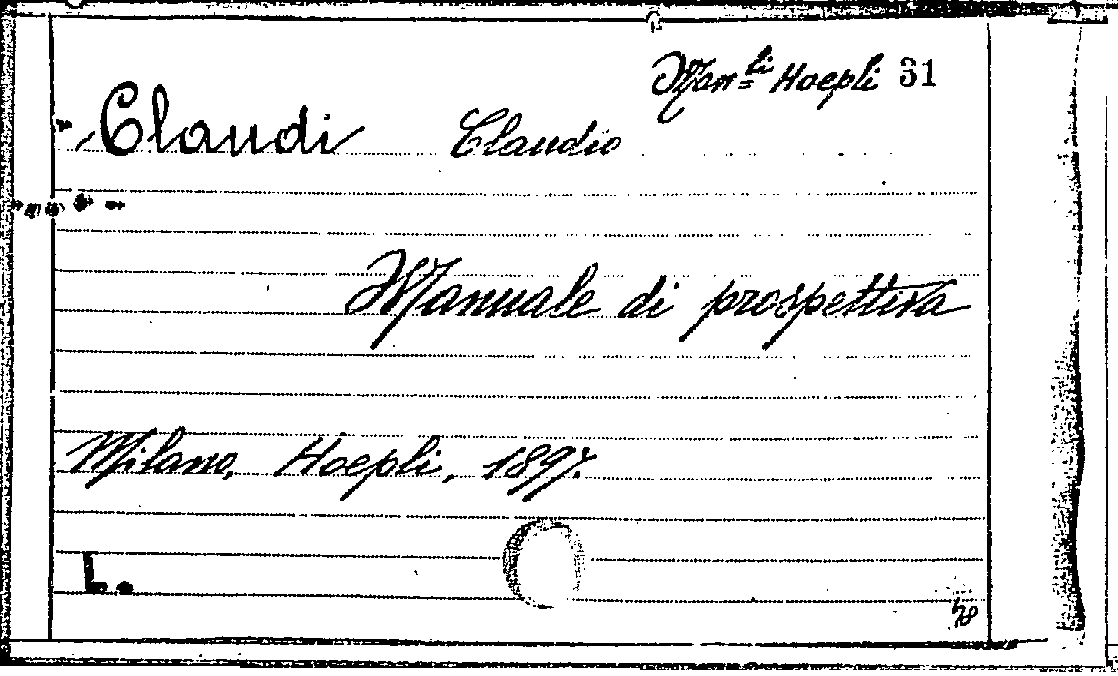 Man.li Hoepli 31
Claudi Claudio
Manuale di prospettiva
Milano, Hoepli, 1897.
L.